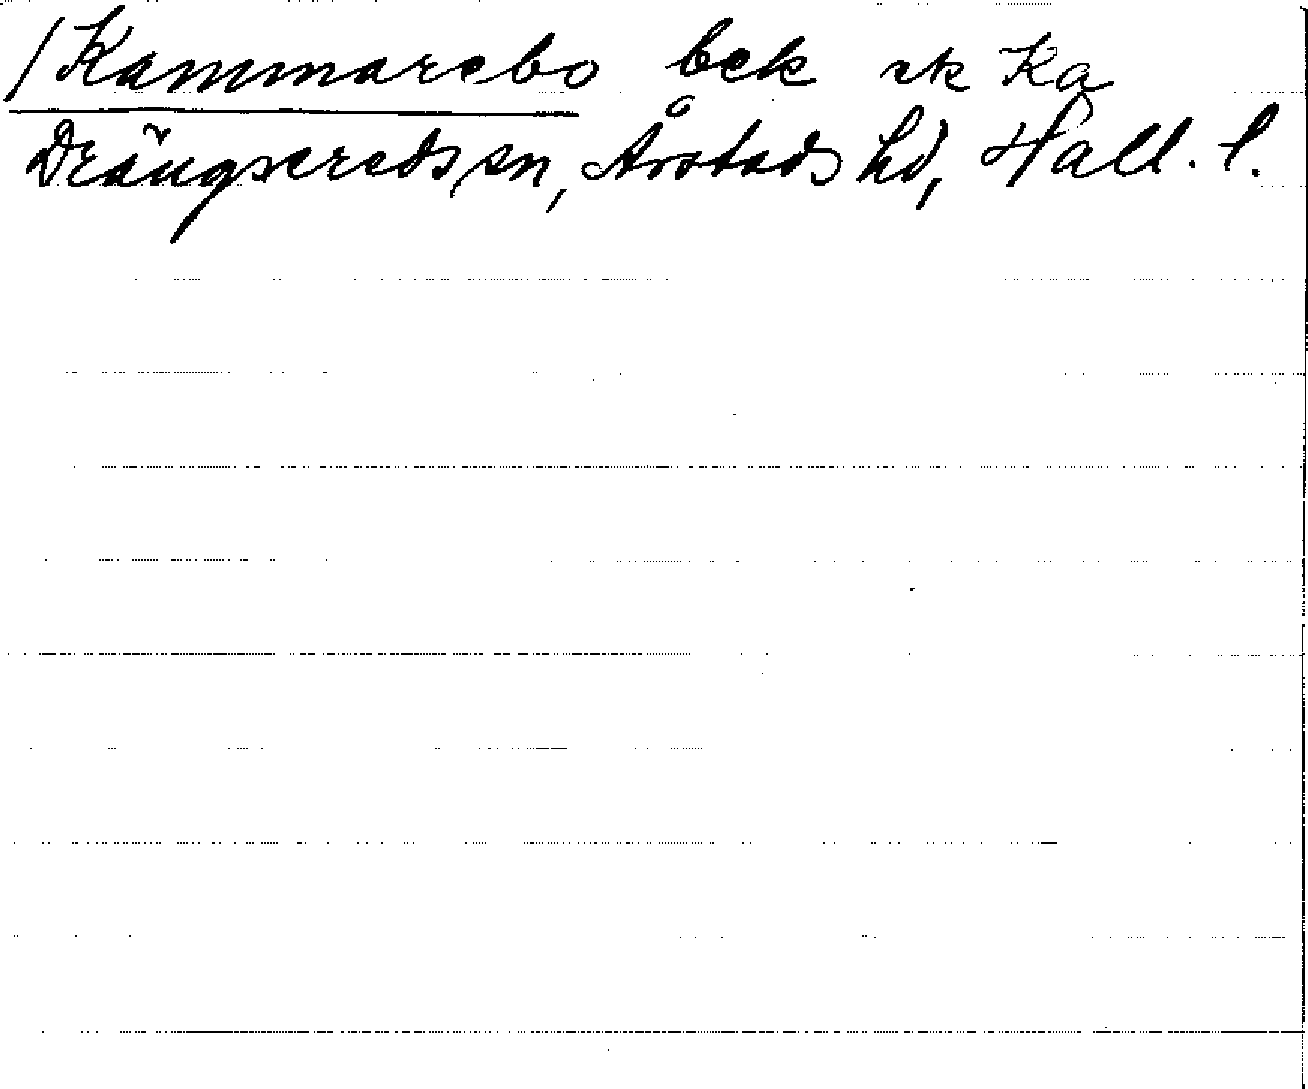 /Kammarebo bek rk Ka
Drängsereds sn, Årstads hd, Hall. l.